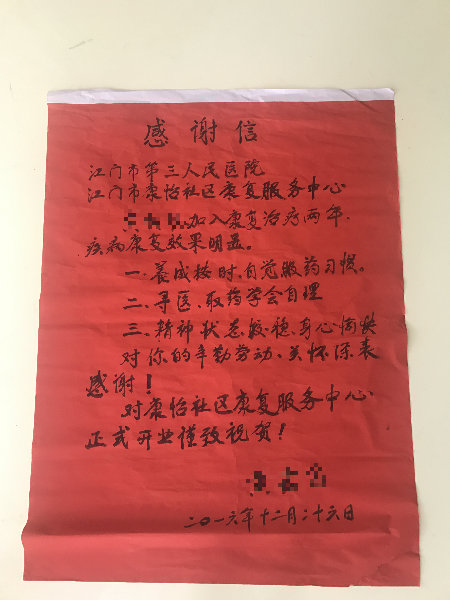 感谢信
江门市第三人民医院
江门市康怡社区康复服务中心
加入康复治疗两年,
疾病康复效果明显。
一.养成按时,自觉服药习惯。
二.寻医、取药学会自理
三.精神状态较稳,身心愉快
对你的辛勤劳动、关怀深表
感谢!
对康怡社区康复服务中心
正式开业谨致祝贺!
二0一六年十二月二十六日